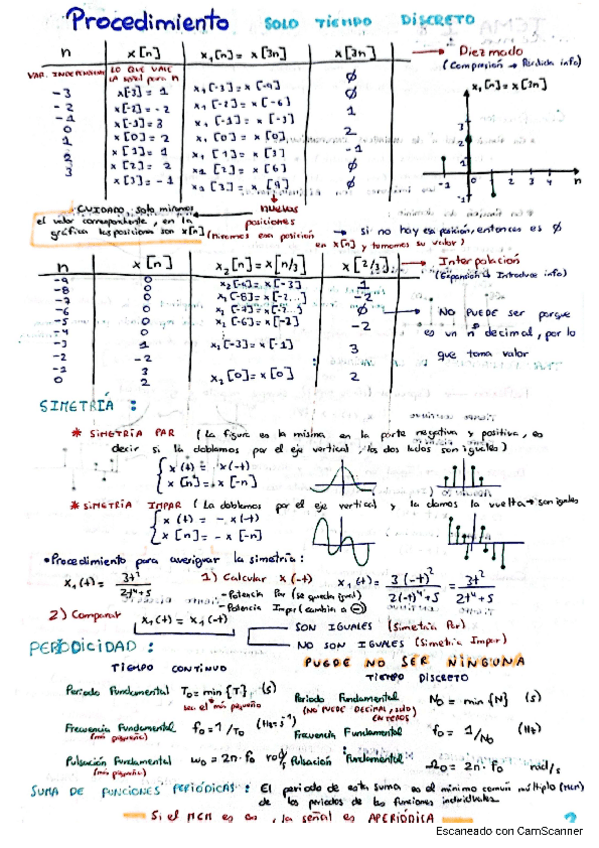 Procedimiento SOLO TIEMPO DISCRETO
n x[n] x₁[n] = x[3n] x[3n] → Diezmado
VAR. INDEPENDIENTE LO QUE VALE LA señal para n (Compresión → Perdida info)
-3 x[-3] = 1 x₁[-3] = x[-9] Ø x₁[n] = x[3n]
-2 x[-2] = -2 x₁[-2] = x[-6] Ø
-1 x[-1] = 3 x₁[-1] = x[-3] 1
0 x[0] = 2 x₁[0] = x[0] 2
1 x[1] = 1 x₁[1] = x[3] -1
2 x[2] = 2 x₁[2] = x[6] Ø
3 x[3] = -1 x₁[3] = x[9] Ø
CUIDADO solo miramos nuevas
el valor correspondiente, en la posiciones → si no hay esa posición, entonces es Ø
gráfica las posiciones son x[n] (Miramos esa posición en x[n] y tomamos su valor)
n x[n] x₂[n] = x[n/3] → Interpolación
(Expansión → Introduce info)
-9 0 x₂[-9] = x[-3] 1
-8 0 x₂[-8] = x[-2...] -2
-7 0 Ø → NO PUEDE ser porque
-6 0 x₂[-6] = x[-2] -2 es un nº decimal, por lo
-5 0
-4 0
-3 1 x₂[-3] = x[-1] 3 que toma valor
-2 -2
-1 3
0 2 x₂[0] = x[0] 2
SIMETRÍA :
* SIMETRÍA PAR (La figura es la misma en la parte negativa y positiva, es
decir si la doblamos por el eje vertical, los dos lados son iguales)
x(t) = x(-t)
x[n] = x[-n]
* SIMETRÍA IMPAR (La doblamos por el eje vertical y la damos la vuelta → son iguales
x(t) = -x(-t)
x[n] = -x[-n]
• Procedimiento para averiguar la simetría:
x₁(t) = 3t² / 2t⁴+5 1) Calcular x(-t) x₁(-t) = 3(-t)² / 2(-t)⁴+5 = 3t² / 2t⁴+5
- Potencia Par (se queda igual)
- Potencia Impar (cambia a ⊖)
2) Comparar x₁(t) = x₁(-t) SON IGUALES (Simetría Par)
NO SON IGUALES (Simetría Impar)
PERIODICIDAD : PUEDE NO SER NINGUNA
TIEMPO CONTINUO TIEMPO DISCRETO
Periodo Fundamental T₀ = min {T} (s) Periodo Fundamental N₀ = min {N} (s)
sea el más pequeño (NO PUEDE DECIMAL, SOLO ENTEROS)
Frecuencia Fundamental f₀ = 1/T₀ (Hz = s⁻¹) Frecuencia Fundamental f₀ = 1/N₀ (Hz)
(más pequeña)
Pulsación Fundamental ω₀ = 2π·f₀ rad/s Pulsación Fundamental Ω₀ = 2π·f₀ rad/s
(más pequeña)
SUMA DE FUNCIONES PERIÓDICAS : El periodo de esta suma es el mínimo común múltiplo (mcm)
de los periodos de las funciones individuales.
Si el MCM es ∞, la señal es APERIÓDICA
Escaneado con CamScanner